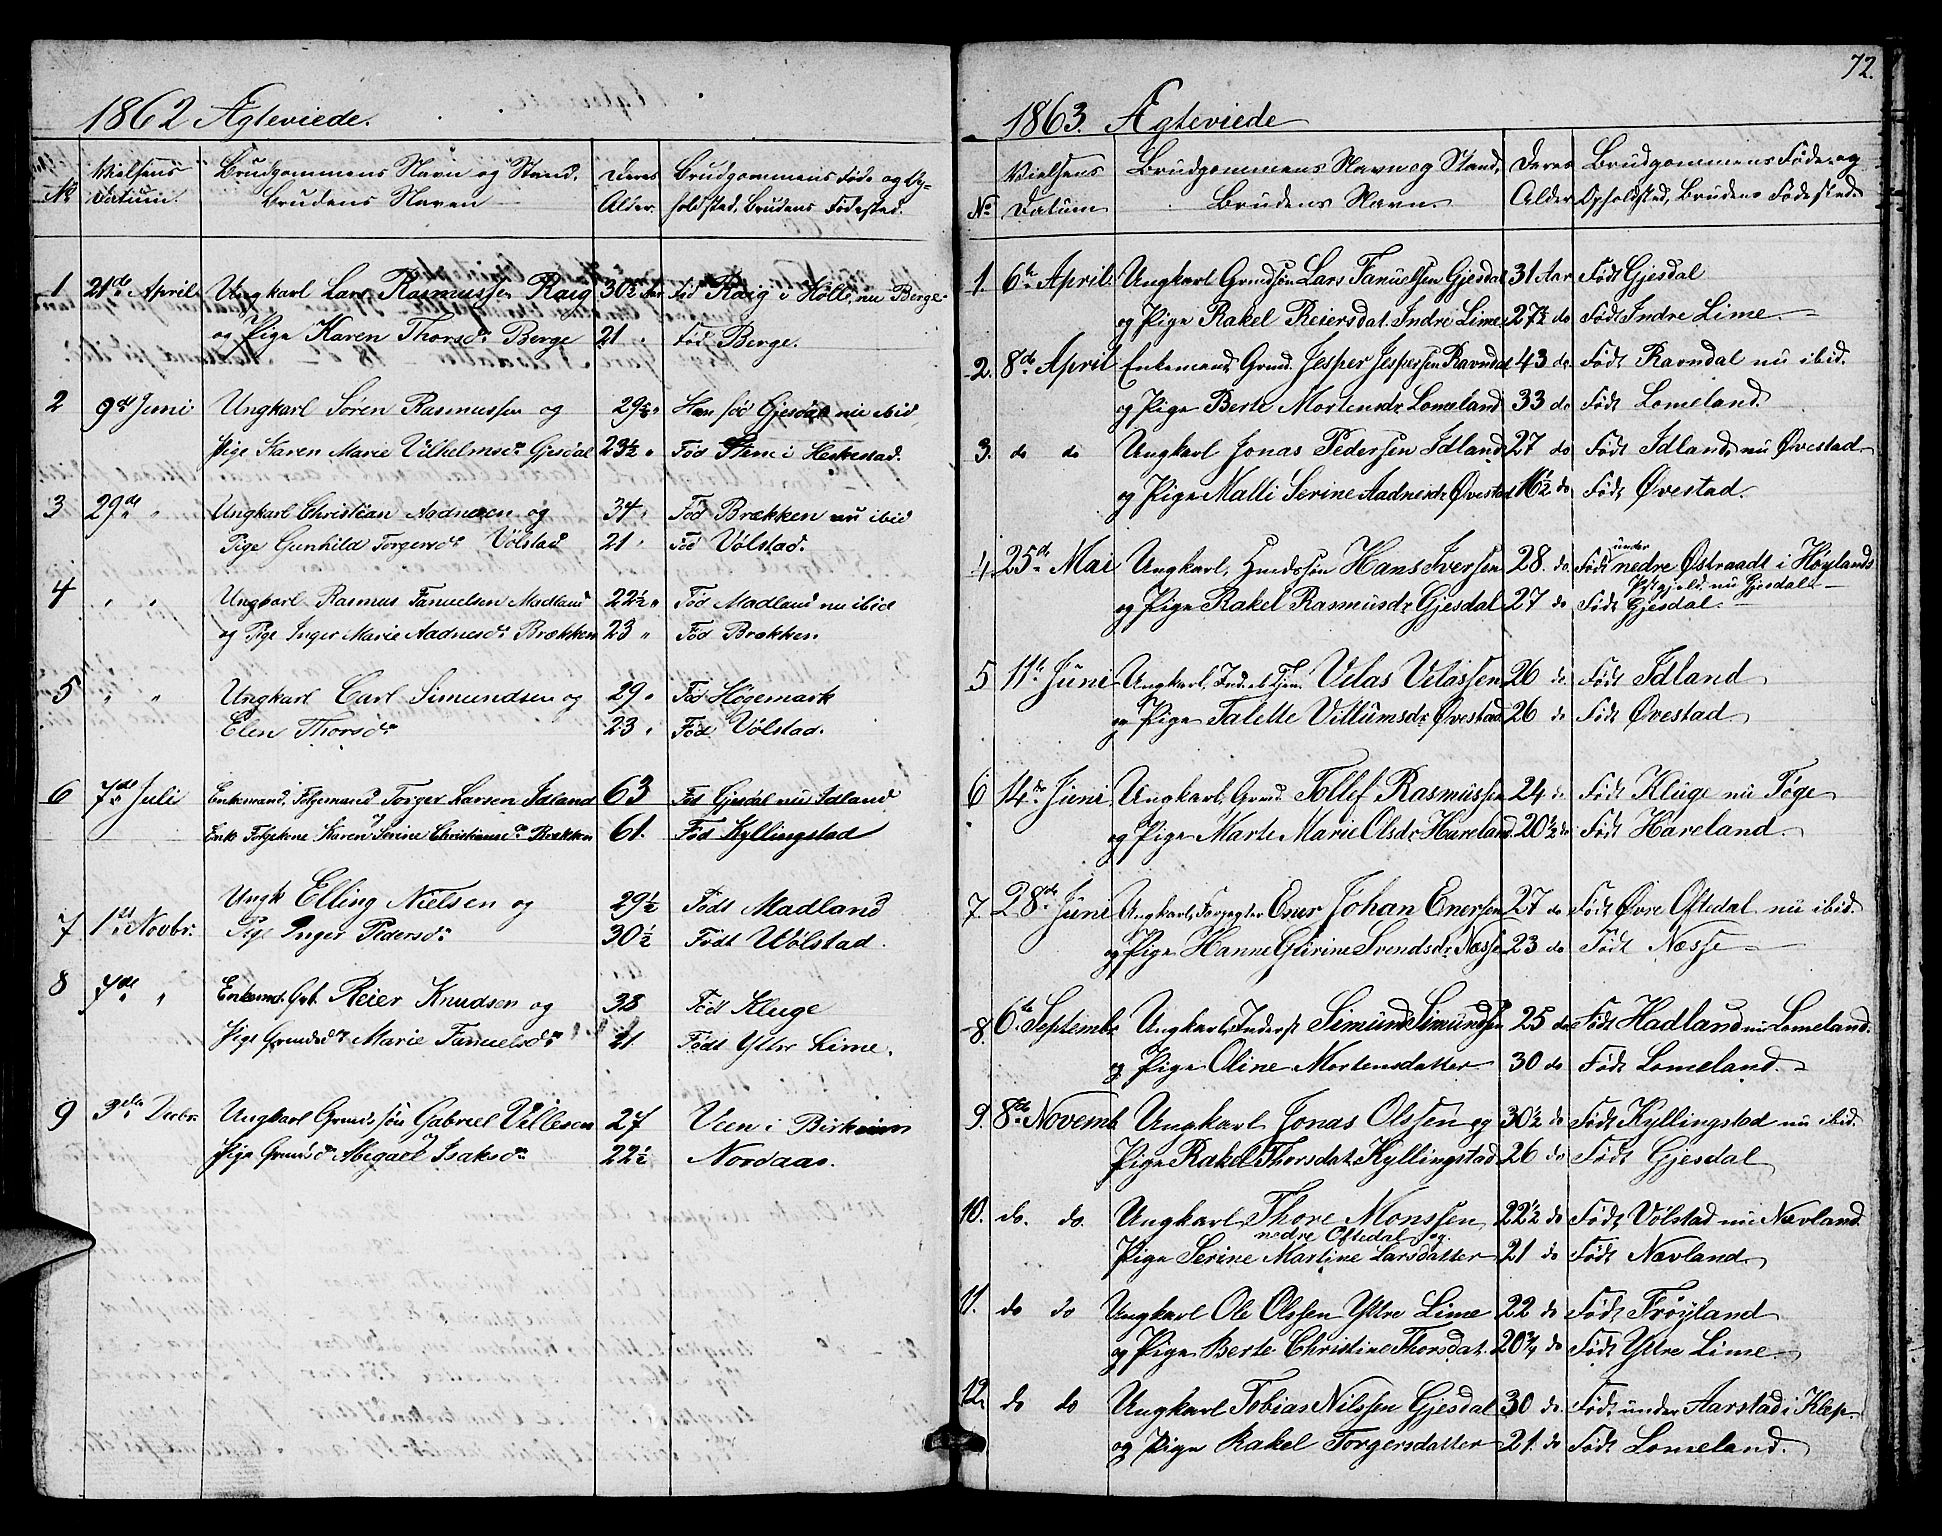 1862 Ægteviede.
No Vielsens Datum. Brudgommens Navn og Stand. Brudens Navn Deres Alder. Brudgommens Føde og Op-
holdsted, Brudens Fødested.
1 21de April Ungkarl Lars Rasmussen Raig 30½ Aar Fød Raig i Hölle nu Berge
og Pige Karen Thorsdr Berge 21 " Fød Berge.
2 9de Juni Ungkarl Sören Rasmussen og 29½ " Han fød Gjesdal nu ibid
Pige Karen Marie Vilhelmsdr Gjesdal 23½ " Fød Steni i Heskestad.
3 29de " Ungkarl Christian Aadnesen og 34 " Fød Brækken nu ibid
Pige Gunhild Torgersdr Völstad 21 " Fød Völstad.
4 " " Ungkarl Rasmus Fanuelsen Madland 22½ " Fød Madland nu ibid
og Pige Inger Marie Aadnesdr Brækken 23 " Fød Brækken
5 " " Ungkarl Carl Simundsen og 29 " Fød Høgemark
Elen Thorsdr 23 " Fød Völstad.
6 7de Juli Enkemand, Følgemand Torger Larsen Idland 63 Fød Gjesdal nu Idland
Enke Følgekone Karen Serine Christiansdr Brækken 61. Fød Kyllingstad
7 1ste Novbr. Ungk Elling Nielsen og 29½ Født Madland
Pige Inger Pedersdr 30½ Født Völstad.
8 7de " Enkemd. Grb. Reier Knudsen og 38 Født Kluge
Pige Grmdsdr Marie Fanuelsdr 21 Født Ytre Lime.
9 3die Decbr. Ungkarl Grmdssön Gabriel Villesen 27 Veen i Birkrem
Pige Grmdsdr Abigael Isaksdr 22½ Nordaas.
72.
1863. Ægteviede
No Vielsens Datum Brudgommens Navn og Stand, Brudens Navn. Deres Alder Brudgommens Føde og
Opholdsted, Brudens Fødested.
1. 6te April Ungkarl Grmdsøn Lars Fanuelsen Gjesdal 31 Aar Født Gjesdal
og Pige Rakel Reiersdat. Indre Lime 27½ do Født Indre Lime.
2. 8de April Enkemand Grmd. Jesper Jespersen Ravndal 43 do Født Ravndal nu ibid.
og Pige Berte Mortensdr Lomeland 33 do Født Lomeland.
3. do do Ungkarl Jonas Pedersen Idland 27 do Født Idland nu Øvestad
og Pige Malli Serine Aadnesdr Øvestad 16½ do Født Øvestad.
4. 25de Mai Ungkarl, Hmdssøn Hans Iversen 28. do Født under nedre Østraadt i Høylands
Pstgjeld. nu Gjesdal
og Pige Rakel Rasmusdr Gjesdal 27 do Født Gjesdal.
5 11te Juni Ungkarl, Velas Velassen 26 do Født Idland
og Pige Talette Villumsdr Øvestad 26 do Født Øvestad
6 14de Juni Ungkarl, Grmd. Tollef Rasmussen 24 do Født Kluge nu Føge
og Pige Marte Marie Olsdr Haveland 20½ do Født Haveland.
7. 28de Juni Ungkarl, Forpagter Enur Johan Enersen 27 do Født Øvre Oftedal nu ibid.
og Pige Hanne Gurine Svendsdr Næsse 23 do Født Næsse
8. 6te Septembr Ungkarl, Inderst Simund Simundsen 25 do Født Hadland nu Lomeland.
og Pige Oline Mortensdatter 30 do Født Lomeland.
9. 8de Novemb. Ungkarl Jonas Olssen og 30½ do Født Kyllingstad nu ibid.
Pige Rakel Thorsdat. Kyllingstad 26 do Født Gjesdal
10. do. do. Ungkarl Thore Monssen 22½ do Født Völstad nu Nævland
nedre Oftedal og
Pige Serine Martine Larsdatter 21 do Født Nævland
11. do do Ungkarl Ole Olssen Ytre Lime 22 do Født Frøyland
og Pige Berte Christine Thorsdat. 20¾ do Født Ytre Lime
12. do do Ungkarl Tobias Nilssen Gjesdal 30 do Født under Aarstad i Klep.
og Pige Rakel Torgersdatter 21. do Født Lomeland.